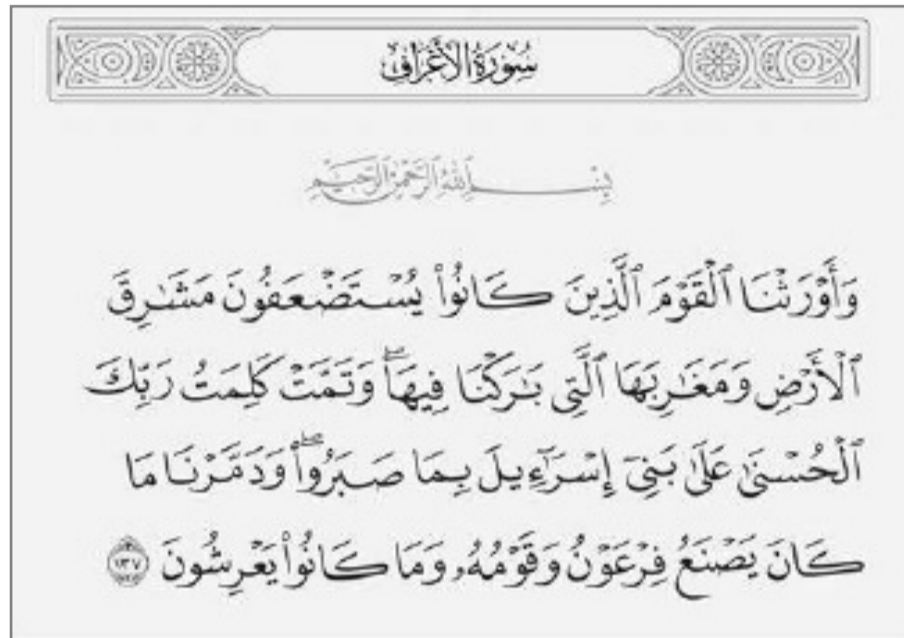 سُورَةُ الأَعْرَافِ
بِسْمِ ٱللَّهِ ٱلرَّحْمَٰنِ ٱلرَّحِيمِ
وَأَوْرَثْنَا ٱلْقَوْمَ ٱلَّذِينَ كَانُوا۟ يُسْتَضْعَفُونَ مَشَٰرِقَ
ٱلْأَرْضِ وَمَغَٰرِبَهَا ٱلَّتِى بَٰرَكْنَا فِيهَا ۖ وَتَمَّتْ كَلِمَتُ رَبِّكَ
ٱلْحُسْنَىٰ عَلَىٰ بَنِىٓ إِسْرَٰٓءِيلَ بِمَا صَبَرُوا۟ ۖ وَدَمَّرْنَا مَا
كَانَ يَصْنَعُ فِرْعَوْنُ وَقَوْمُهُۥ وَمَا كَانُوا۟ يَعْرِشُونَ ١٣٧